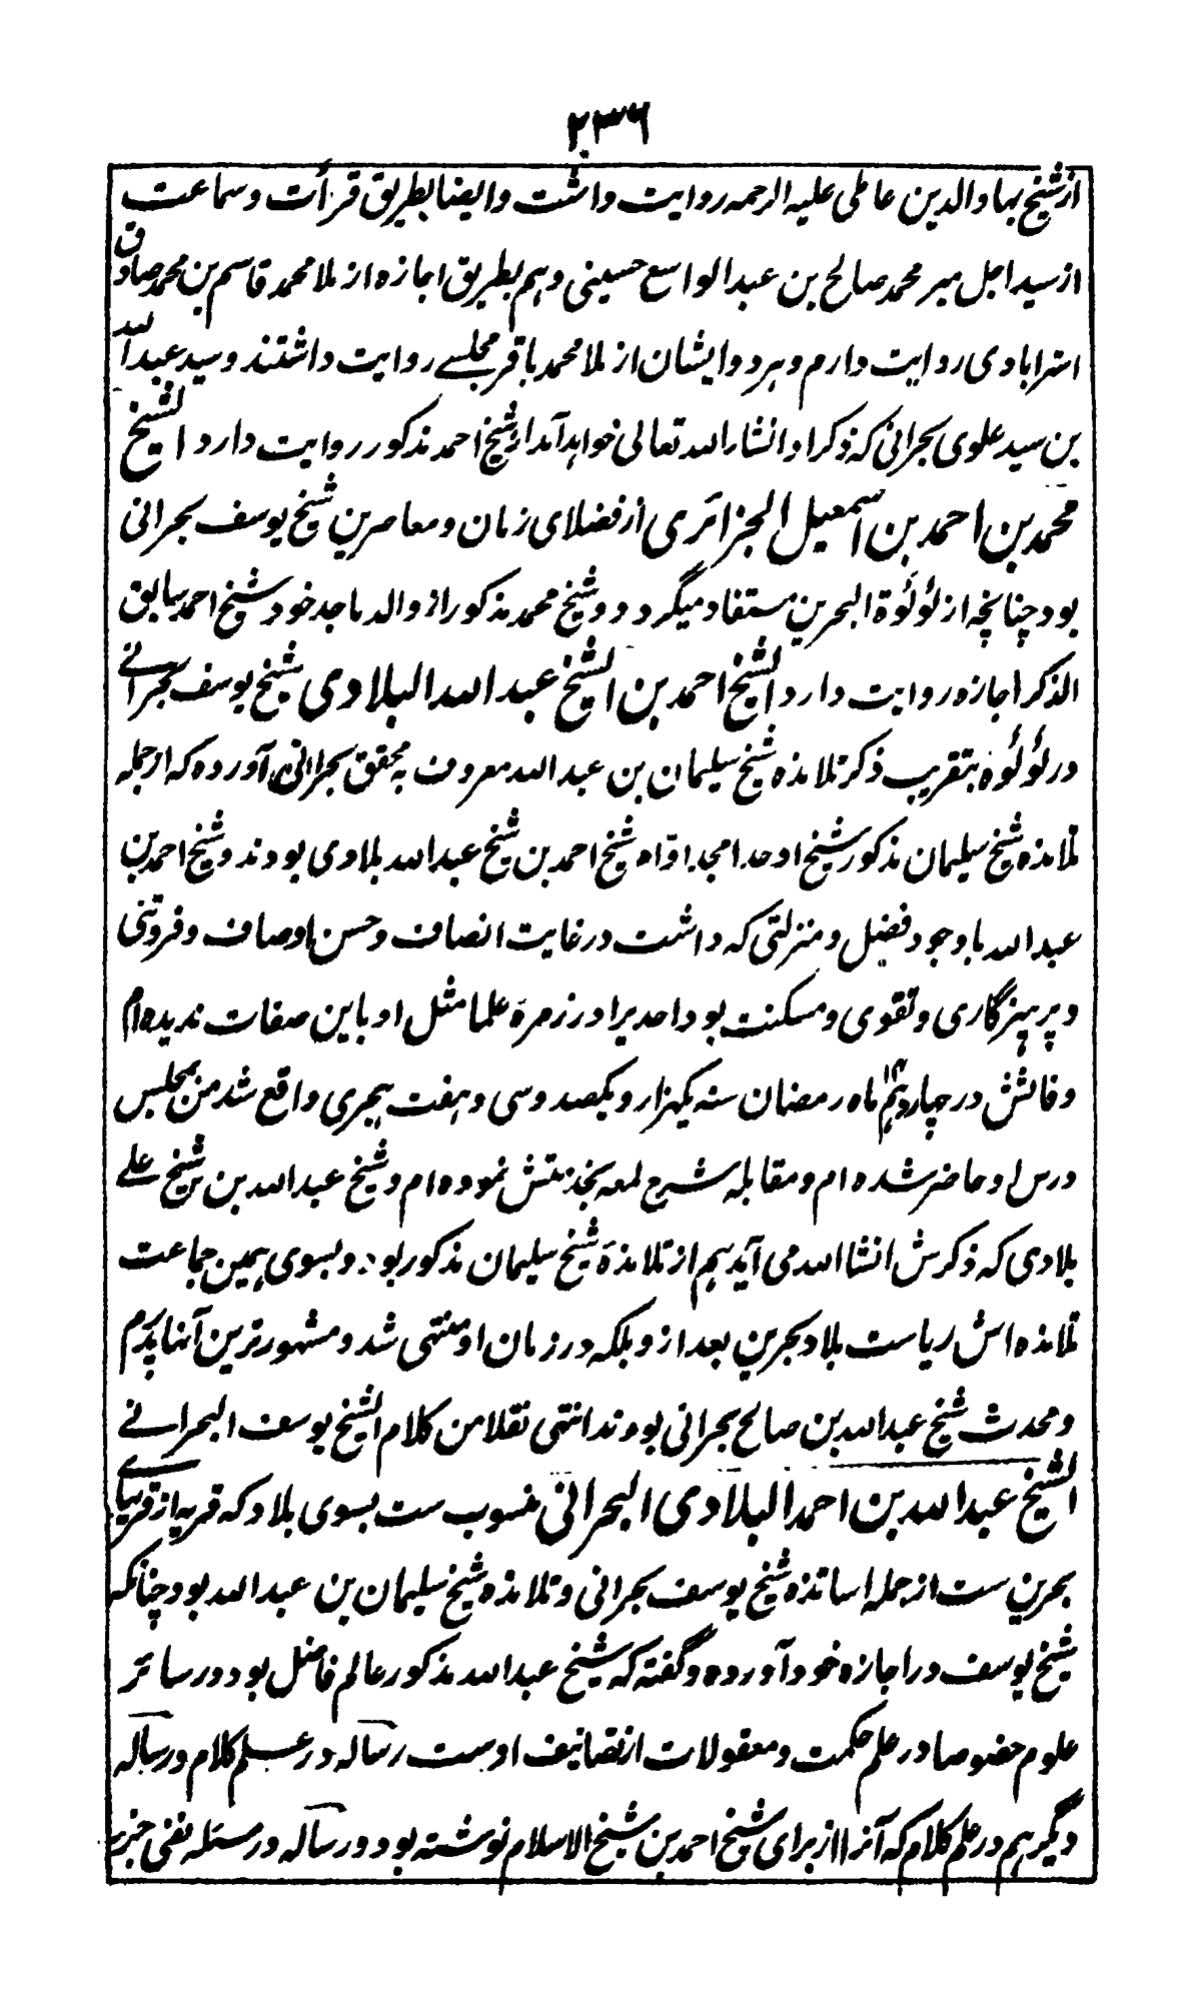 ۲۳۶
از شیخ بهاوالدین عاملی علیه الرحمه روایت داشت و ایضا بطریق قرأت و سماعت
از سید اجل میر محمد صالح بن عبدالواسع حسینی و هم بطریق اجازه از ملا محمد قاسم بن محمد صادق
استرابادی روایت دارم و هر دو ایشان از ملا محمد باقر مجلسے روایت داشتند و سید عبدالله
بن سید علوی بحرانی که ذکر او انشاءالله تعالی خواهد آمد از شیخ احمد مذکور روایت دارد الشیخ
محمد بن احمد بن اسمعیل الجزائری از فضلای زمان و معاصرین شیخ یوسف بحرانی
بود چنانچه از لؤلؤة البحرین مستفاد میگردد و شیخ محمد مذکور از والد ماجد خود شیخ احمد سابق
الذکر اجازه روایت دارد الشیخ احمد بن الشیخ عبدالله البلادی شیخ یوسف بحرانے
در لؤلؤه بتقریب ذکر تلامذه شیخ سلیمان بن عبدالله معروف به محقق بحرانی آورده که از جمله
تلامذه شیخ سلیمان مذکور شیخ اوحد امجد اواه شیخ احمد بن شیخ عبدالله بلادی بودند و شیخ احمد بن
عبدالله باوجود فضل و منزلتی که داشت در غایت انصاف و حسن اوصاف و فروتنی
و پرهیزگاری و تقوی و مسکنت بود احدیرا در زمره علما مثل او باین صفات ندیده ام
وفاتش در چهاردهم ۱۴ ماه رمضان سنه یکهزار و یکصد و سی و هفت هجری واقع شد من بمجلس
درس او حاضر شده ام و مقابله شرح لمعه بخدمتش نموده ام و شیخ عبدالله بن شیخ علے
بلادی که ذکرش انشاالله می آید هم از تلامذهٔ شیخ سلیمان مذکور بود و بسوی همین جماعت
تلامذه اش ریاست بلاد بحرین بعد ازو بلکه در زمان او منتهی شد و مشهورترین آنها پدرم
و محدث شیخ عبدالله بن صالح بحرانی بودند انتهی نقلا من کلام الشیخ یوسف البحرانے
الشیخ عبدالله بن احمد البلادی البحرانی منسوب ست بسوی بلاد که قریه از قریهاے
بحرین ست از جمله اساتذه شیخ یوسف بحرانی و تلامذه شیخ سلیمان بن عبدالله بود چنانکه
شیخ یوسف در اجازه خود آورده و گفته که شیخ عبدالله مذکور عالم فاضل بود در سائر
علوم خصوصا در علم حکمت و معقولات از تصانیف اوست رساله در علم کلام و رساله
دیگر هم در علم کلام که آنرا از برای شیخ احمد بن شیخ الاسلام نوشته بود و رساله در مسئله نفی جزء